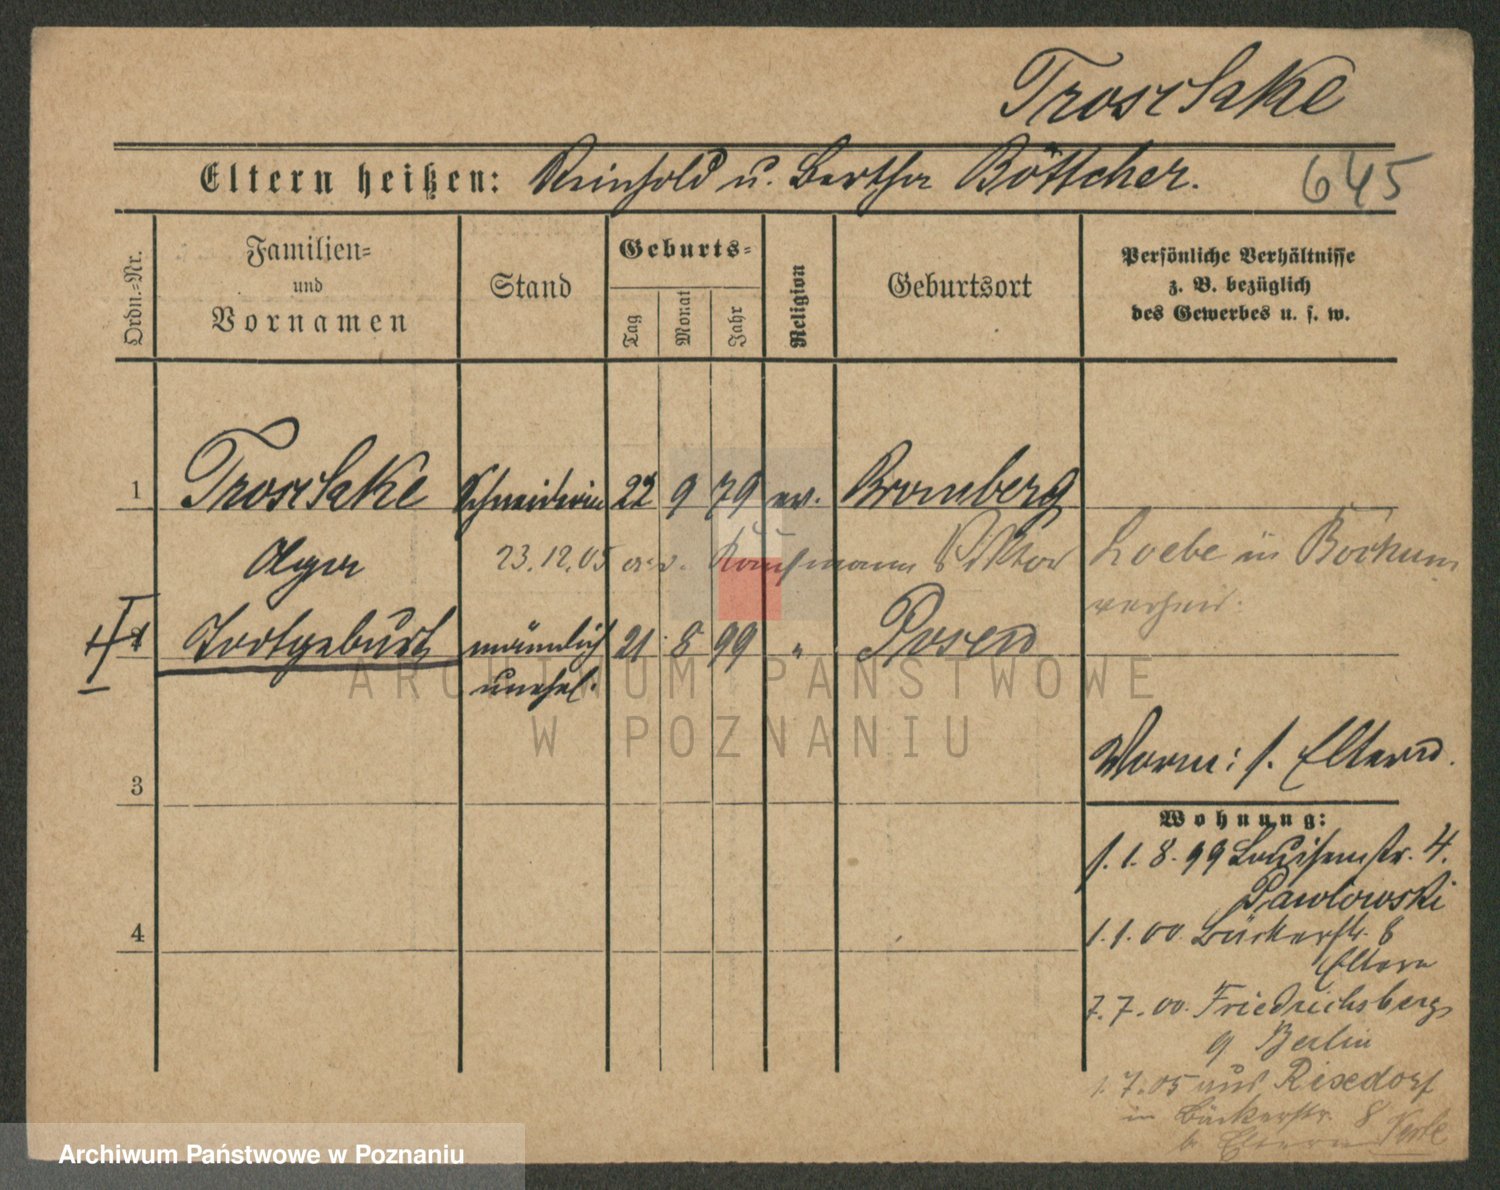 Troschke
Eltern heißen: Reinhold u. Bertha Böttcher.
645
Ordn.-Nr.
Familien-
und
Vornamen
Stand
Geburts-
Tag
Monat
Jahr
Religion
Geburtsort
Persönliche Verhältnisse
z. B. bezüglich
des Gewerbes u. s. w.
1 Troschke Schneiderin 22 9 79 ev. Bromberg
Olga
23.12.05 Kaufmann Viktor Loebe in Bochum
verheir.
Todtgeburt männlich 21. 8 99 " Posen
unehel.
ARCHIWUM PAŃSTWOWE
W POZNANIU
Vorm: s. Eltern.
3
Wohnung:
s. 1. 8. 99 Louisenstr. 4.
Pawlowski
1. 1. 00. Bäckerstr. 8
Eltern
4
7. 7. 00. Friedrichsberg
Berlin
1. 7. 05 aus Rixdorf
in Bäckerstr. 8
b. Eltern
Archiwum Państwowe w Poznaniu